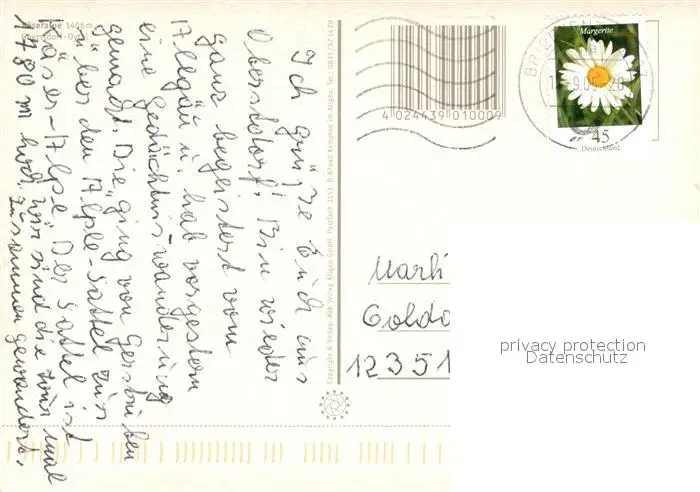 Käseralpe 1406m
Oberstdorf-Oytal
Ich grüße Euch aus
Oberstdorf! Bin wieder
ganz begeistert vom
Allgäu u. hab vorgestern
eine Gedächtniswanderung
gemacht. Die ging von Gerstruben
über den Älple-Sattel zur
Käser-Alpe. Der Sattel ist
1780 m hoch, wir sind die Tour mal
zusammen gewandert.
Copyright & Verlag: AVA Verlag Allgäu GmbH Postfach 3153 D 87440 Kempten im Allgäu, Tel.: 0831/571420
4 024439 010009
BRIEF
Margerite
45
Deutschland
Marli
Goldo
12351
privacy protection
Datenschutz